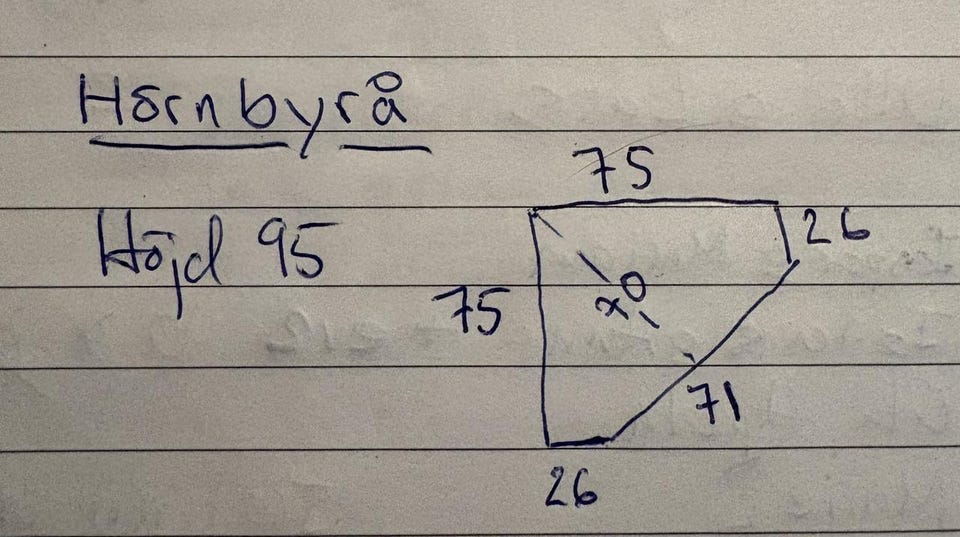 Hörnbyrå
75
26
Höjd 95
75
71
26